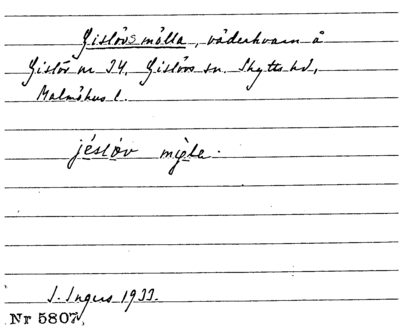 Gislövsmölla, väderkvarn å
Gislöv nr 24, Gislövs sn. Skytts hd,
Malmöhus l.
jéslöv mǫ̀la.
I. Ingers 1933.
Nr 5807,